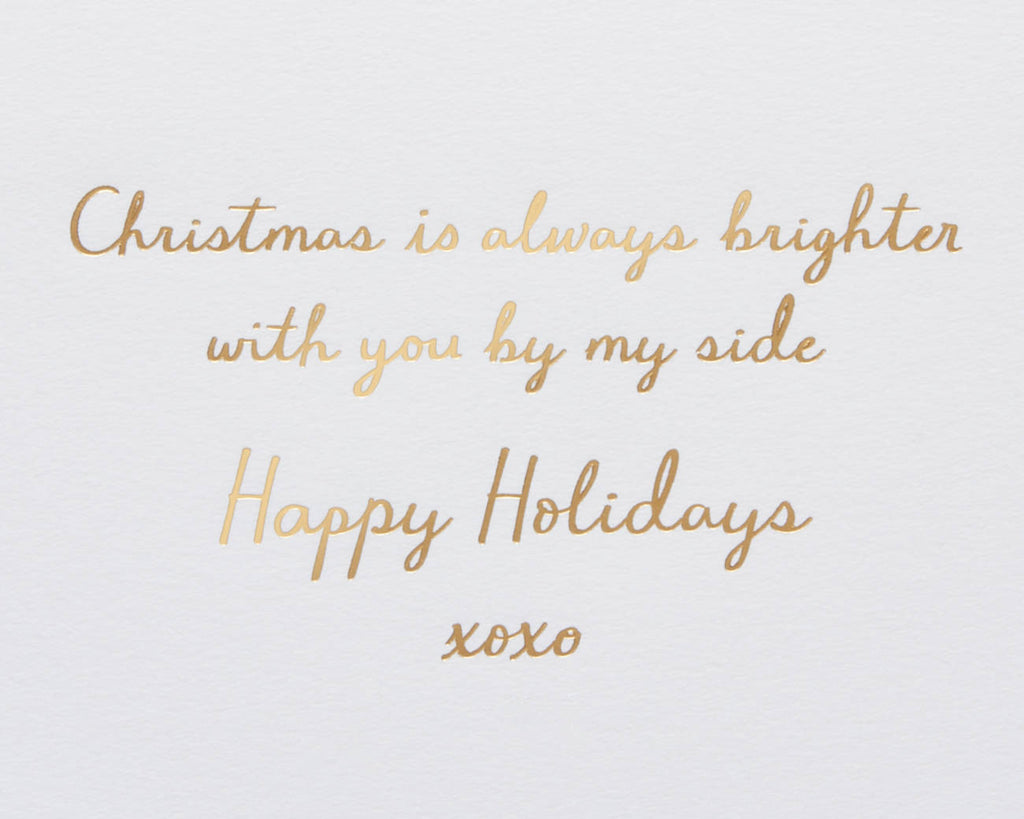 Christmas is always brighter
with you by my side
Happy Holidays
xoxo